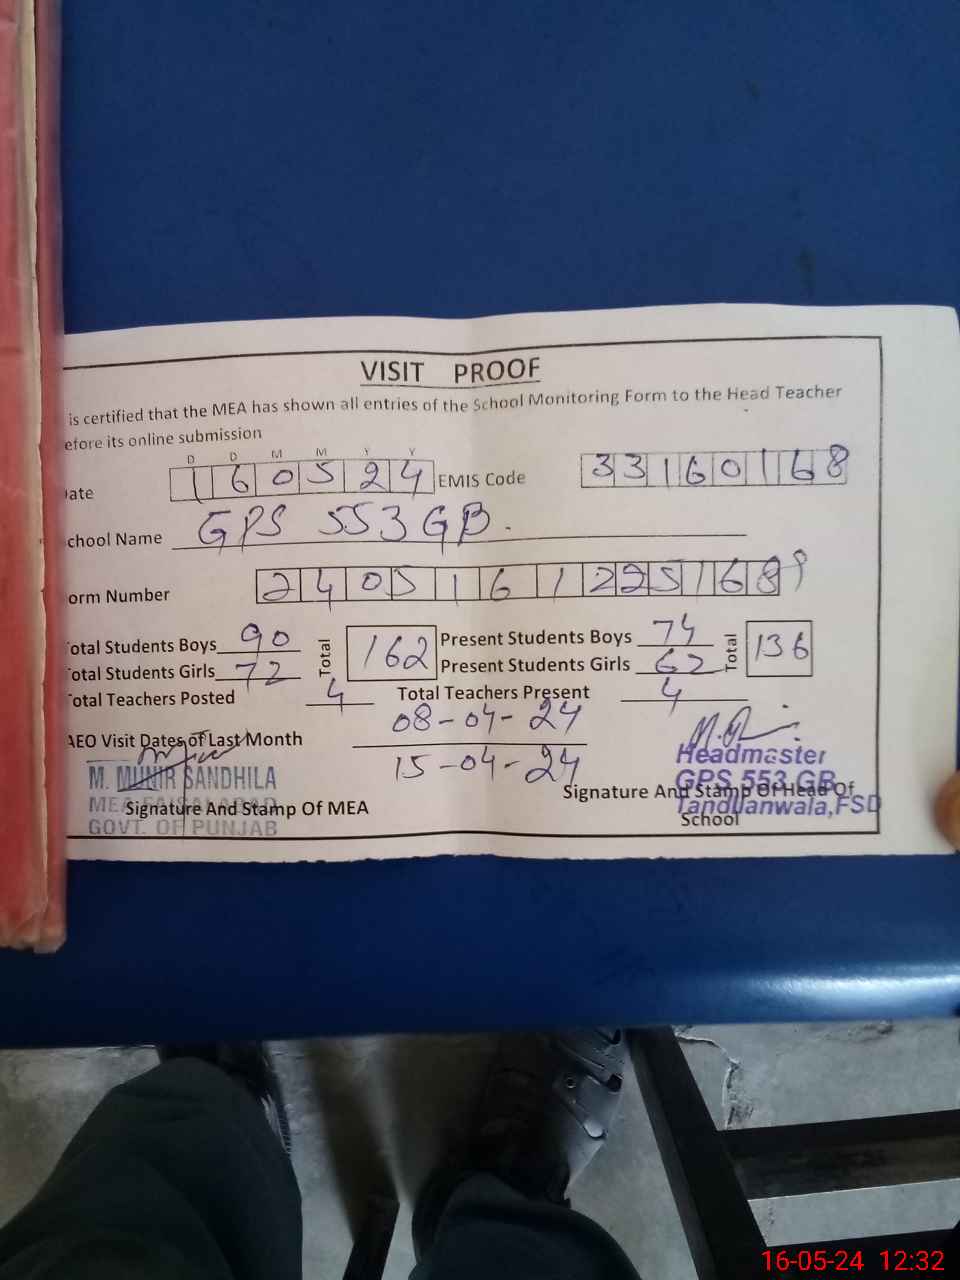 VISIT PROOF
is certified that the MEA has shown all entries of the School Monitoring Form to the Head Teacher
efore its online submission
D D M M Y Y
ate 160524 EMIS Code 33160168
chool Name GPS 553 GB.
orm Number 2405161225168
otal Students Boys 90 Total 162 Present Students Boys 74 Total 136
otal Students Girls 72 Present Students Girls 62
otal Teachers Posted 4 Total Teachers Present 4
AEO Visit Dates of Last Month 08-04-24
15-04-24
M. MUNIR SANDHILA
MEA FAISALABAD
GOVT. OF PUNJAB
Signature And Stamp Of MEA
Headmaster
GPS 553 GB
Tandlianwala, FSD
Signature And Stamp Of Head Of
School
16-05-24 12:32